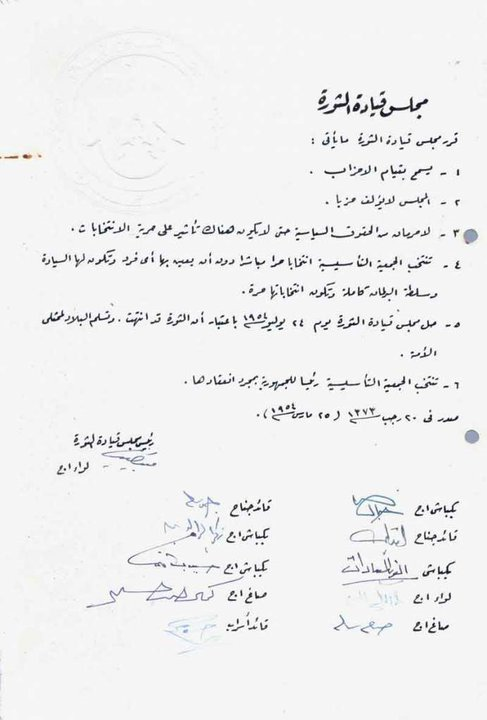 مجلس قيادة الثورة
قرر مجلس قيادة الثورة مايأتى :
١ - يسمح بقيام الاحزاب .
٢ - المجلس لايؤلف حزبا .
٣ - لاحرمان من الحقوق السياسية حتى لايكون هناك تأثير على حرية الانتخابات .
٤ - تنتخب الجمعية التأسيسية انتخابا حرا مباشرا دون أن يعين بها أى فرد وتكون لها السيادة
وسلطة البرلمان كاملة وتكون انتخاباتها حرة .
٥ - حل مجلس قيادة الثورة يوم ٢٤ يوليو ١٩٥٤ باعتبار أن الثورة قد انتهت . وتسلم البلاد لممثلى
الأمة .
٦ - تنتخب الجمعية التأسيسية رئيسا للجمهورية بمجرد انعقادها .
صدر فى ٢٠ رجب ١٣٧٣ ( ٢٥ مارس ١٩٥٤ ) .
رئيس مجلس قيادة الثورة
لواء اح
بكباشى اح
قائد جناح
قائد جناح
بكباشى اح
بكباشى انور السادات
بكباشى اح
لواء اح
صاغ اح
صاغ اح
قائد أسراب